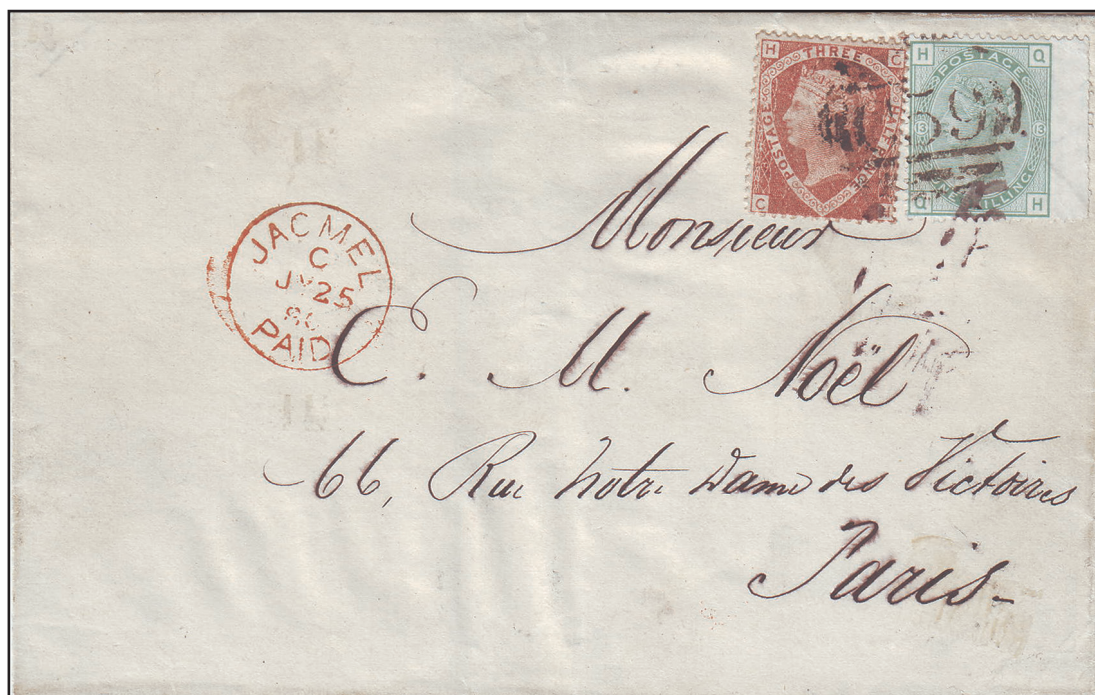 H THREE C
POSTAGE
HALF PENCE
C H
H POSTAGE Q
13 13
Q ONE SHILLING H
C59
JACMEL
C
JY 25
80
PAID
Monsieur
C. M. Noël
66, Rue Notre Dame des Victoires
Paris